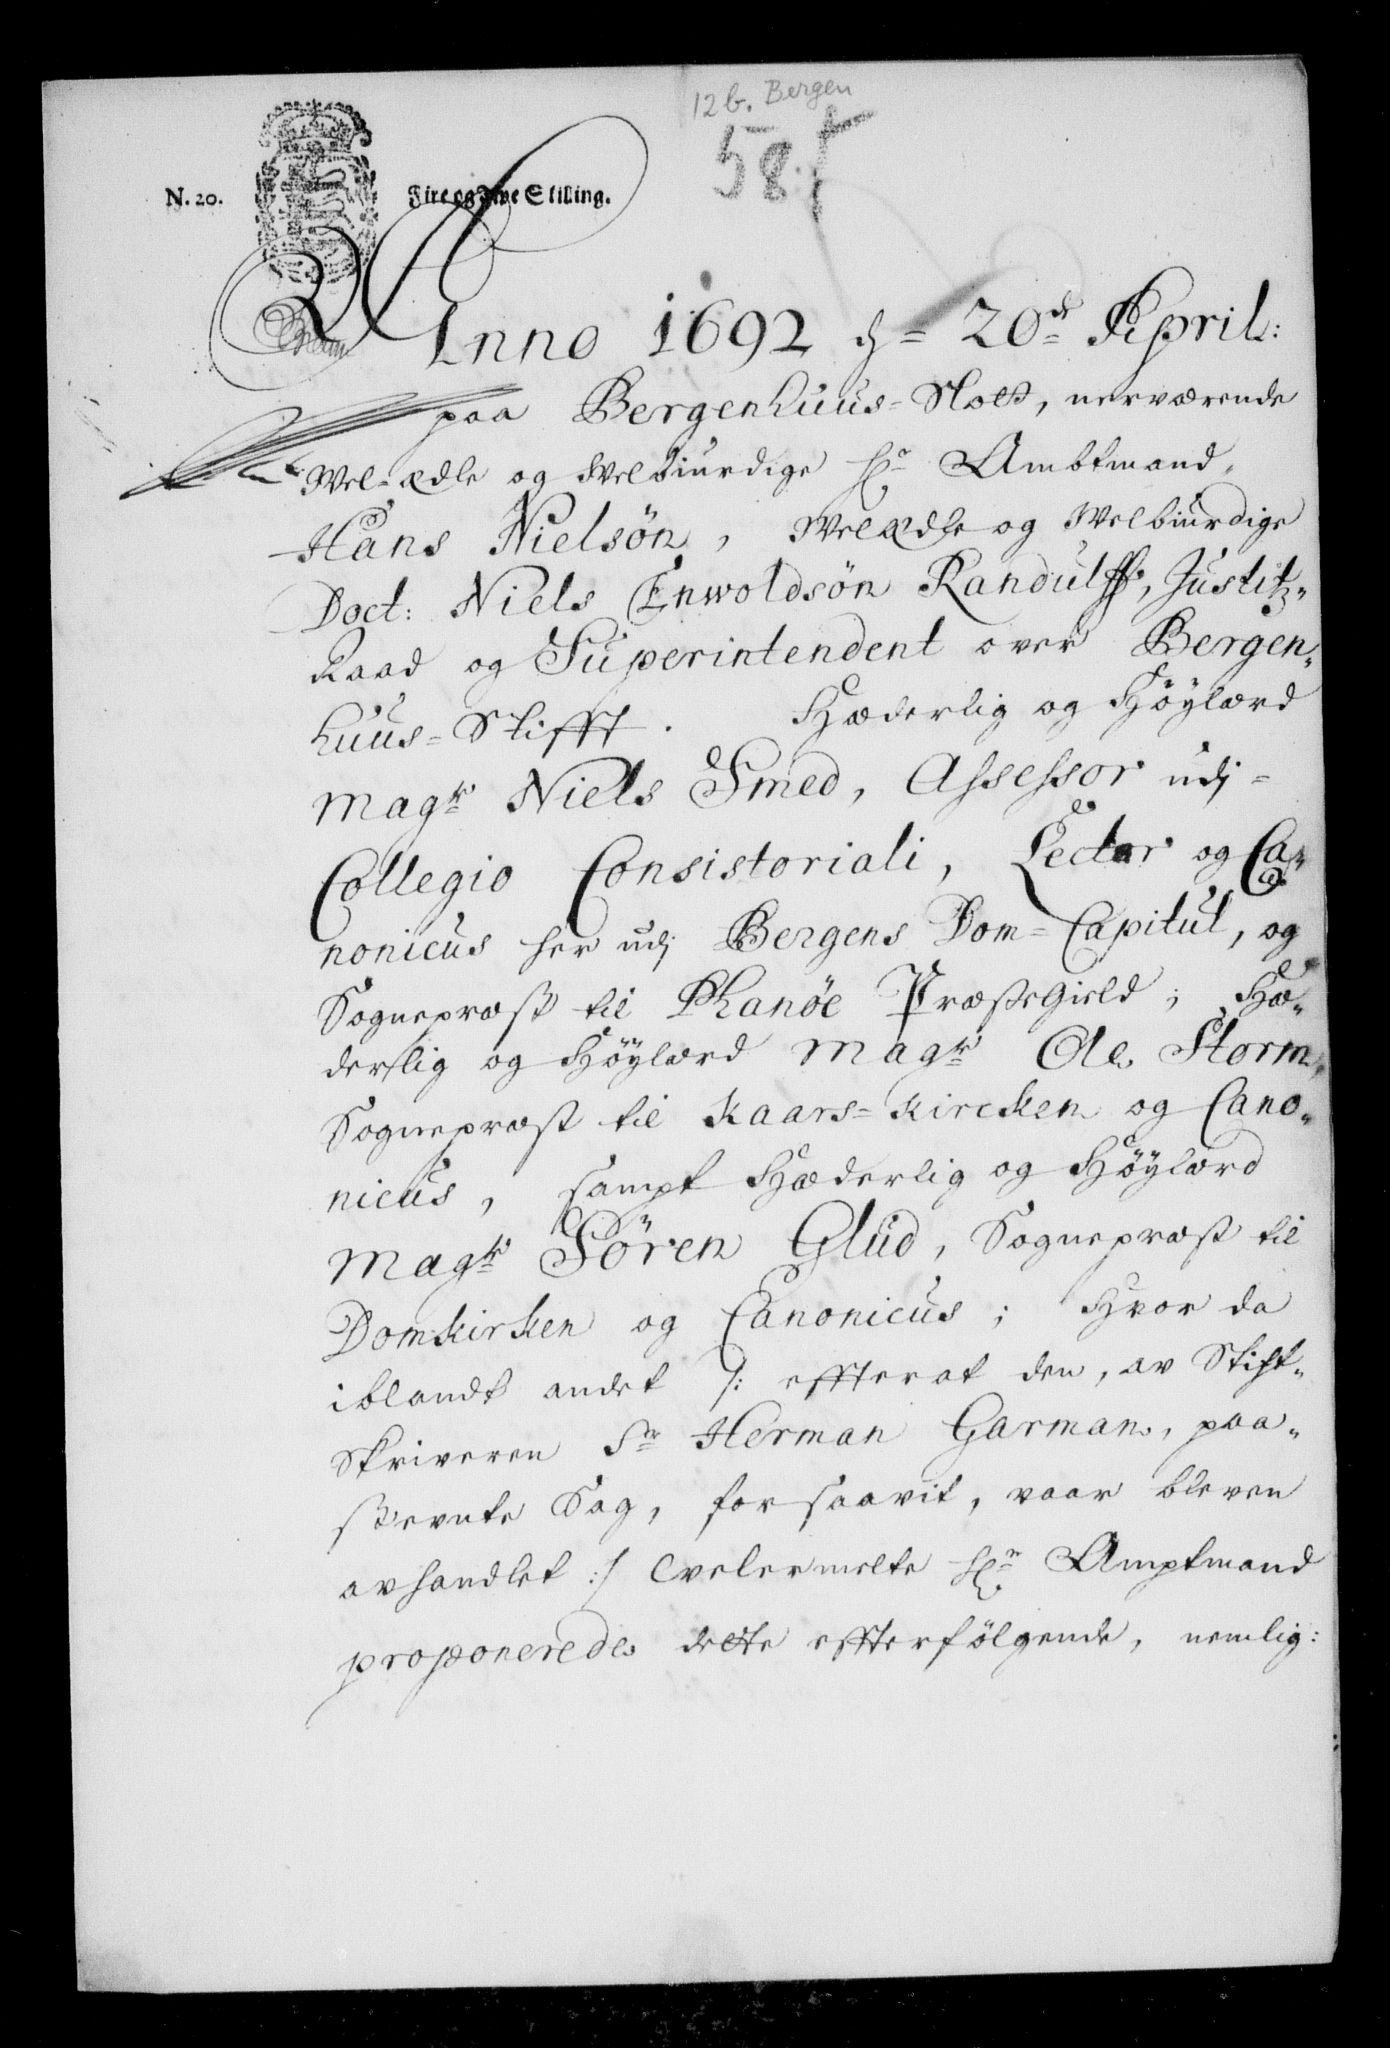 12b. Bergen
58.
N. 20. Fire og Tive Skilling.
Anno 1692 d = 20de April:
paa Bergenhuus-Slott, nerværende
Wel-ædle og Welbiurdige Hr Ambtmand,
Hans Nielsön, Welædle og Welbiurdige
Doct: Niels Enwoldsön Randulff, Justitz-
Raad og Superintendent over Bergen-
huus-Stifft. Hæderlig og Höylærd
Magr Niels Smed, Assessor udj-
Collegio Consistoriali, Lector og Ca-
nonicus her udj Bergens Dom-Capitul, og
Sognepræst til Phanöe Præstegield; Hæ-
derlig og Höylærd Magr Ole Storm,
Sognepræst til Kaars-Kircken og Cano-
nicus, sampt Hæderlig og Höylærd
Magr Sören Glud, Sognepræst til
Domkirken og Canonicus; Hvor da
iblandt andet /: effterat den, av Stift-
skriveren Sr Herman Garman, paa-
stevnte Sag, forsaavit, vaar bleven
avhandlet :/ velermelte Hr Amptmand
proponerede dette effterfölgende, nemlig: